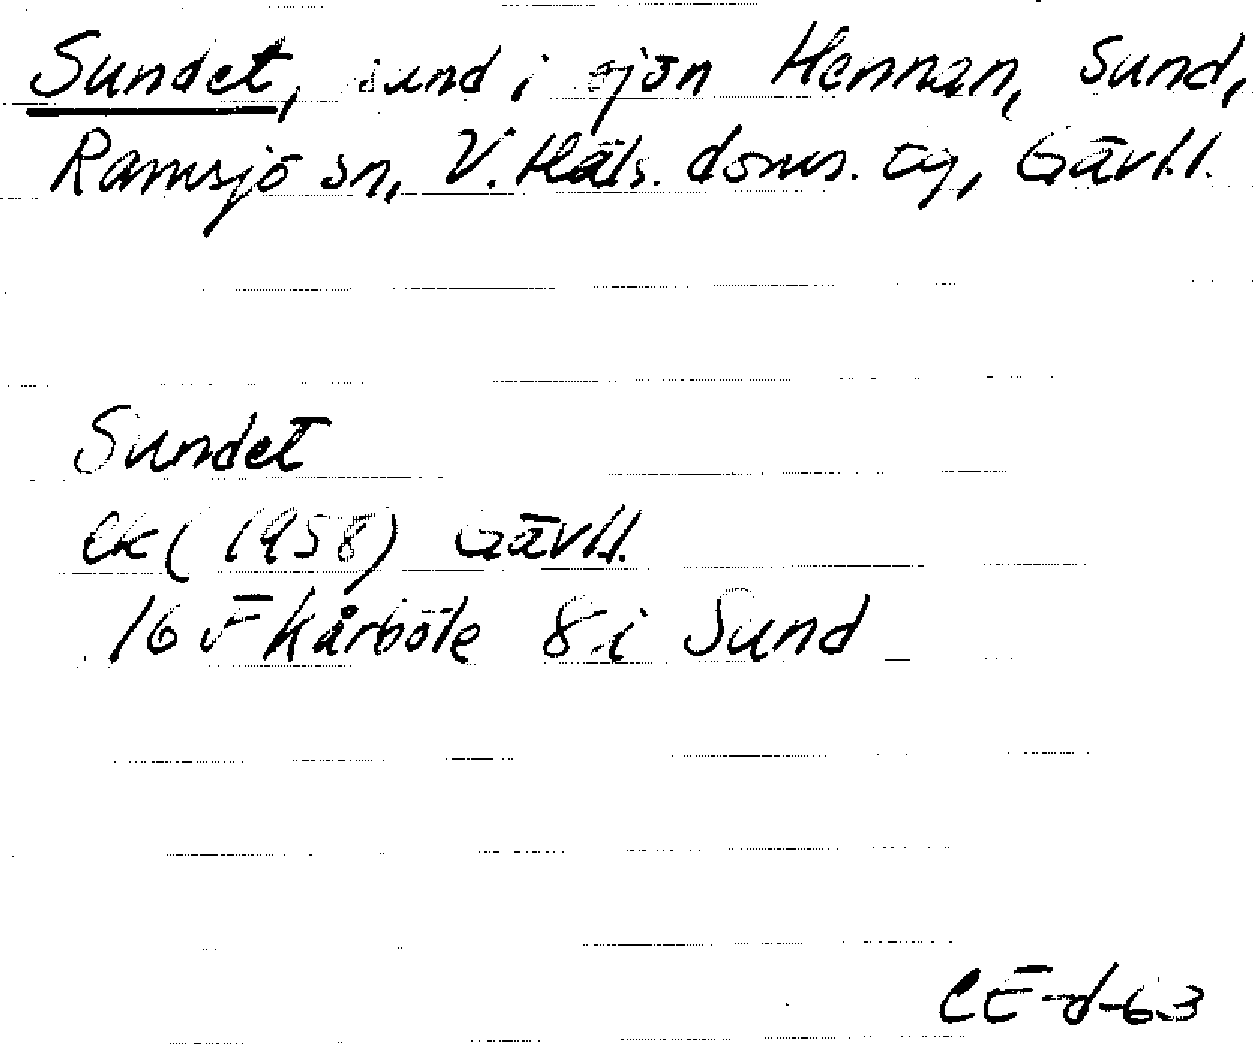 Sundet, sund i sjön Hennan, Sund,
Ramsjö sn, V. Häls. doms. tg, Gävl.l.
Sundet
Ek (1958) Gävl.l.
16 F Kårböle 8 i Sund
CE-d-63